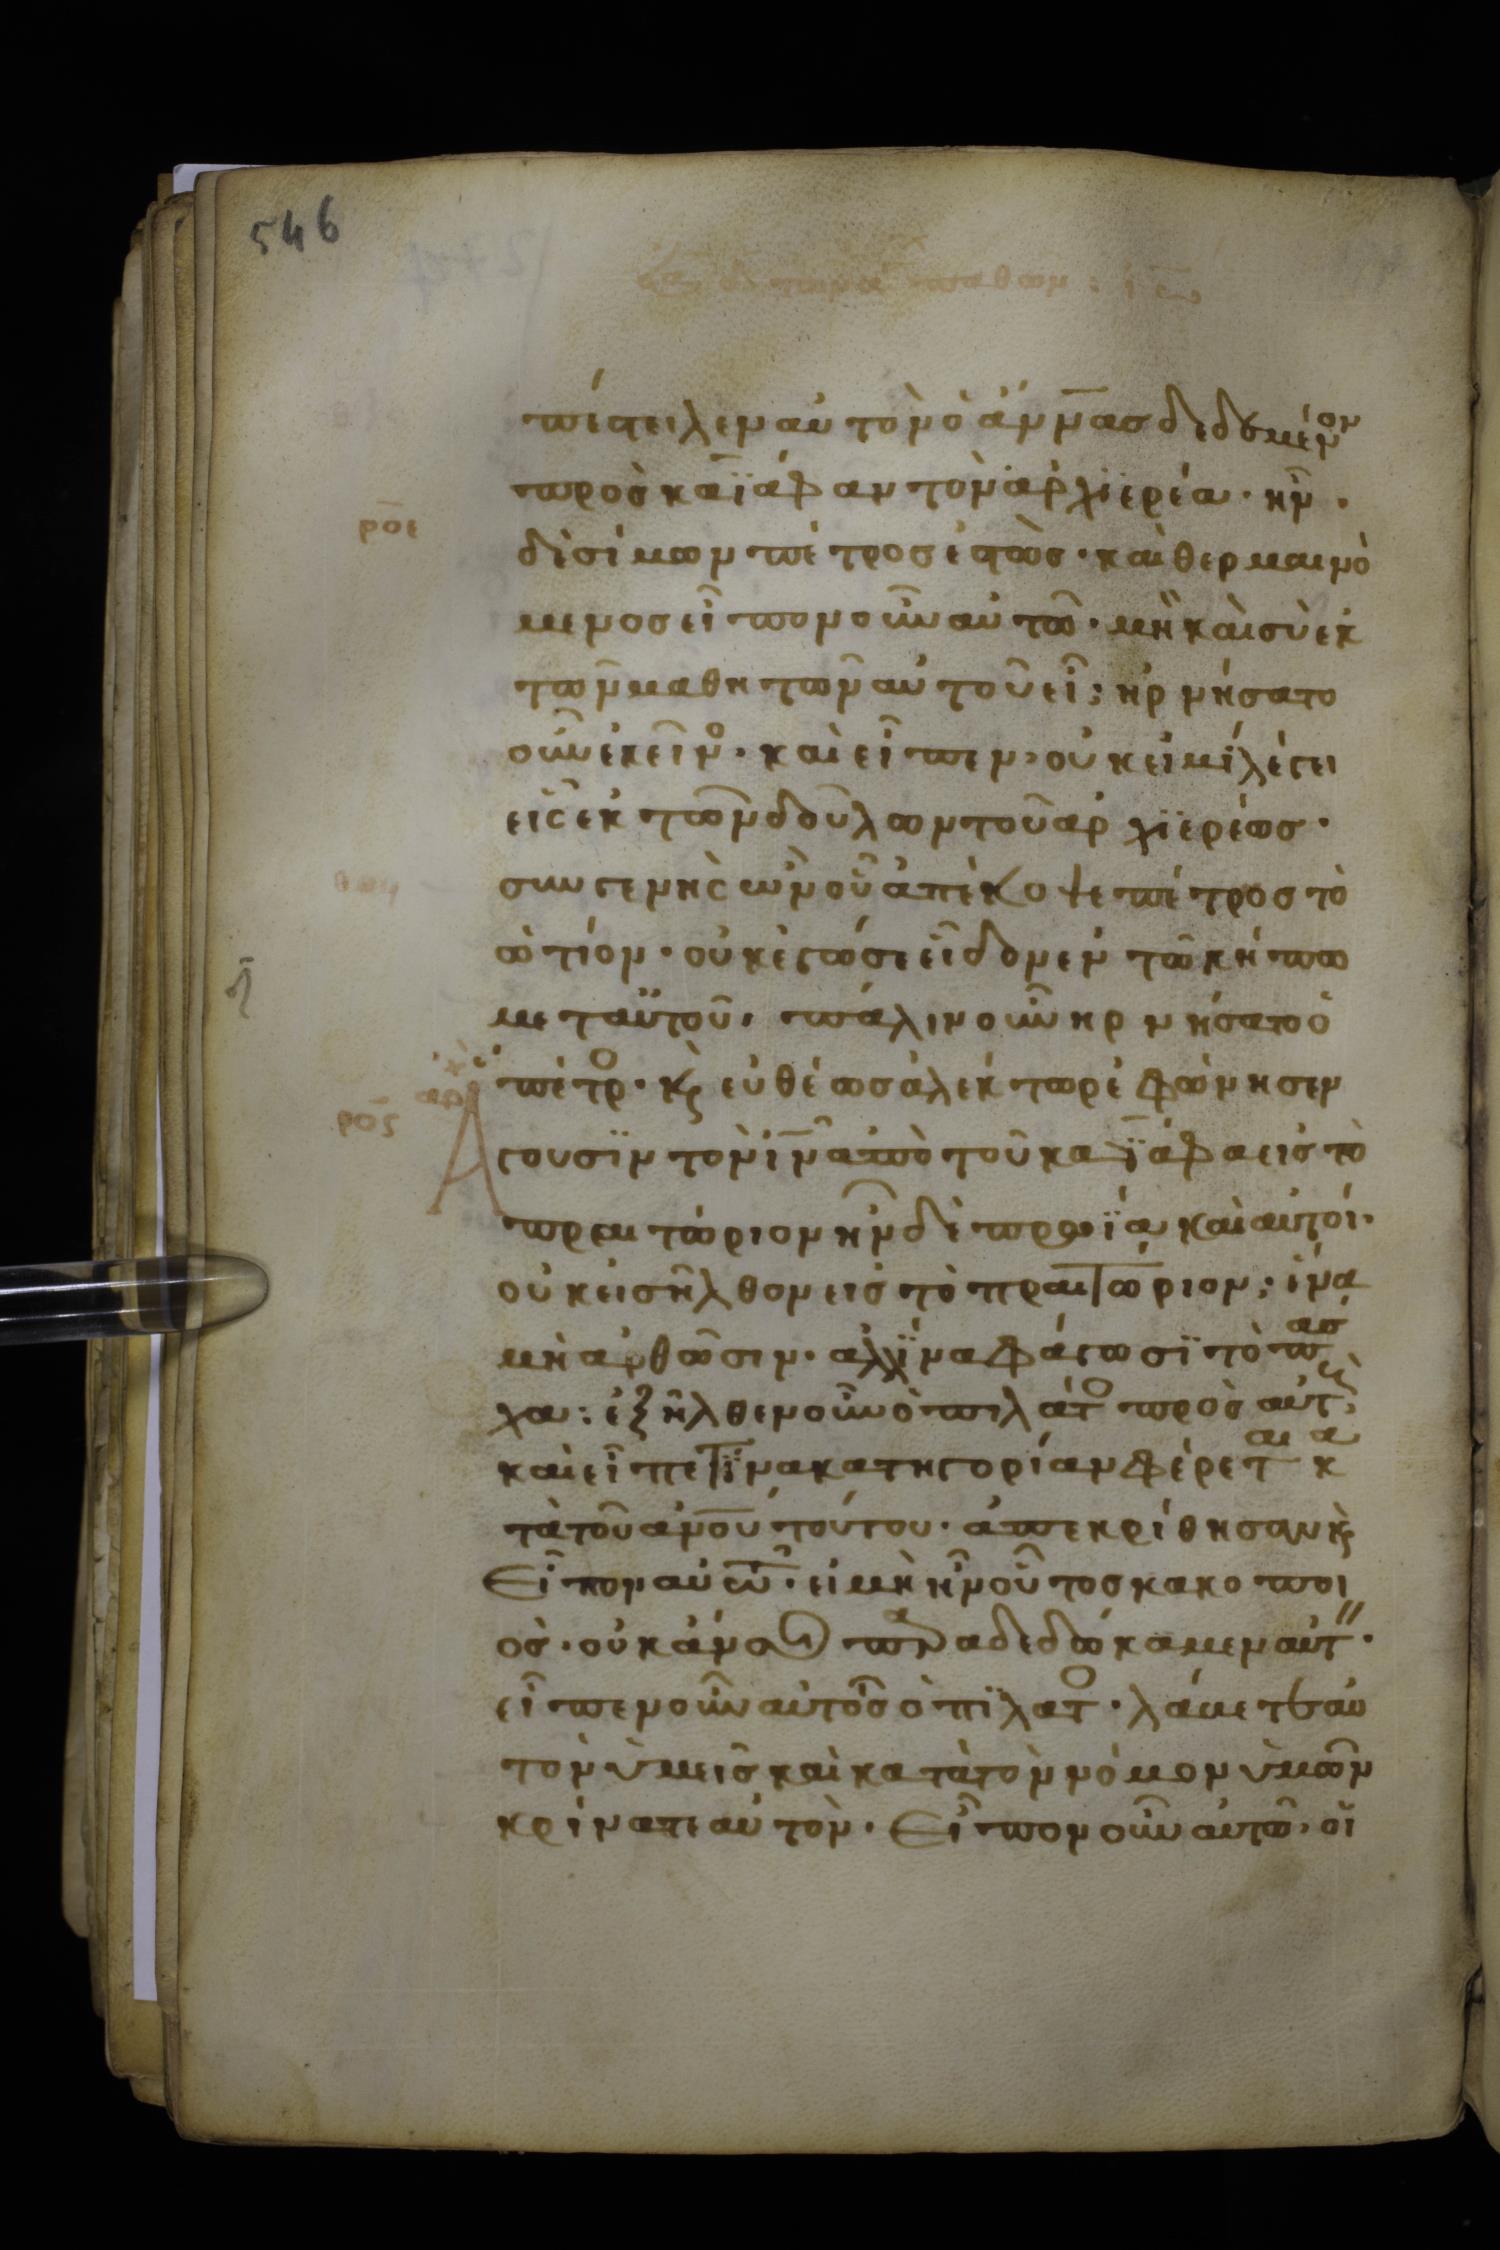 546
πέστειλεν αὐτὸν ὁ ἄννας δεδεμένον
πρὸς καϊάφαν τὸν ἀρχϊερέα· ἦν·
ροε
δὲ σίμων πέτρος ἑστὼς· καὶ θερμαινό
μενος εἶπον οὖν αὐτῶ· μὴ καὶ σὺ ἐκ
τῶν μαθητῶν αὐτοῦ εἶ; ἠρνήσατο
οὖν ἐκεῖνο· καὶ εἶπεν· οὐκ εἰμί λέγει
εἷς ἐκ τῶν δούλων τοῦ ἀρχϊερέως·
συγγενὴς ὢν οὗ ἀπέκοψε πέτρος τὸ
ὠτίον· οὐκ ἐγώ σε εἶδον ἐν τῶ κήπω
μετ αὐτοῦ· πάλιν οὖν ἠρνήσατο ὁ
πέτρο· κ εὐθέως ἀλέκτωρ ἐφώνησεν
ρος
αρχ
Ἄγουσϊν τὸν ιν ἀπὸ τοῦ καϊάφα εἰς τὸ
πραιτώριον ἦν δὲ πρωϊα καὶ αὐτοί·
οὐκ εἰσῆλθον εἰς τὸ πραιτώριον· ἵνα
μὴ αρθῶσιν· αλλ ἵνα φάγωσϊ τὸ πάσ
χα: ἐξῆλθεν οὖν ὁ πιλάτο πρὸς αὐτ
καὶ εἶπε τίνα κατηγορίαν φέρεται κα
τὰ τοῦ ανου τούτου· ἀπεκρίθησαν κ
Εἶπον αὐτῶ· εἰ μὴ ἦν οὗτος κακοποι
ὸς· οὐκ ἄν σοι παραδεδώκαμεν αὐτ·
εἶπεν οὖν αὐτοῖς ὁ πϊλατο· λάβετε αὐ
τὸν ὑμεῖς καὶ κατὰ τὸν νόμον ὑμῶν
κρίνατε αὐτὸν· Εἶπον οὖν αὐτῶ· οἱ